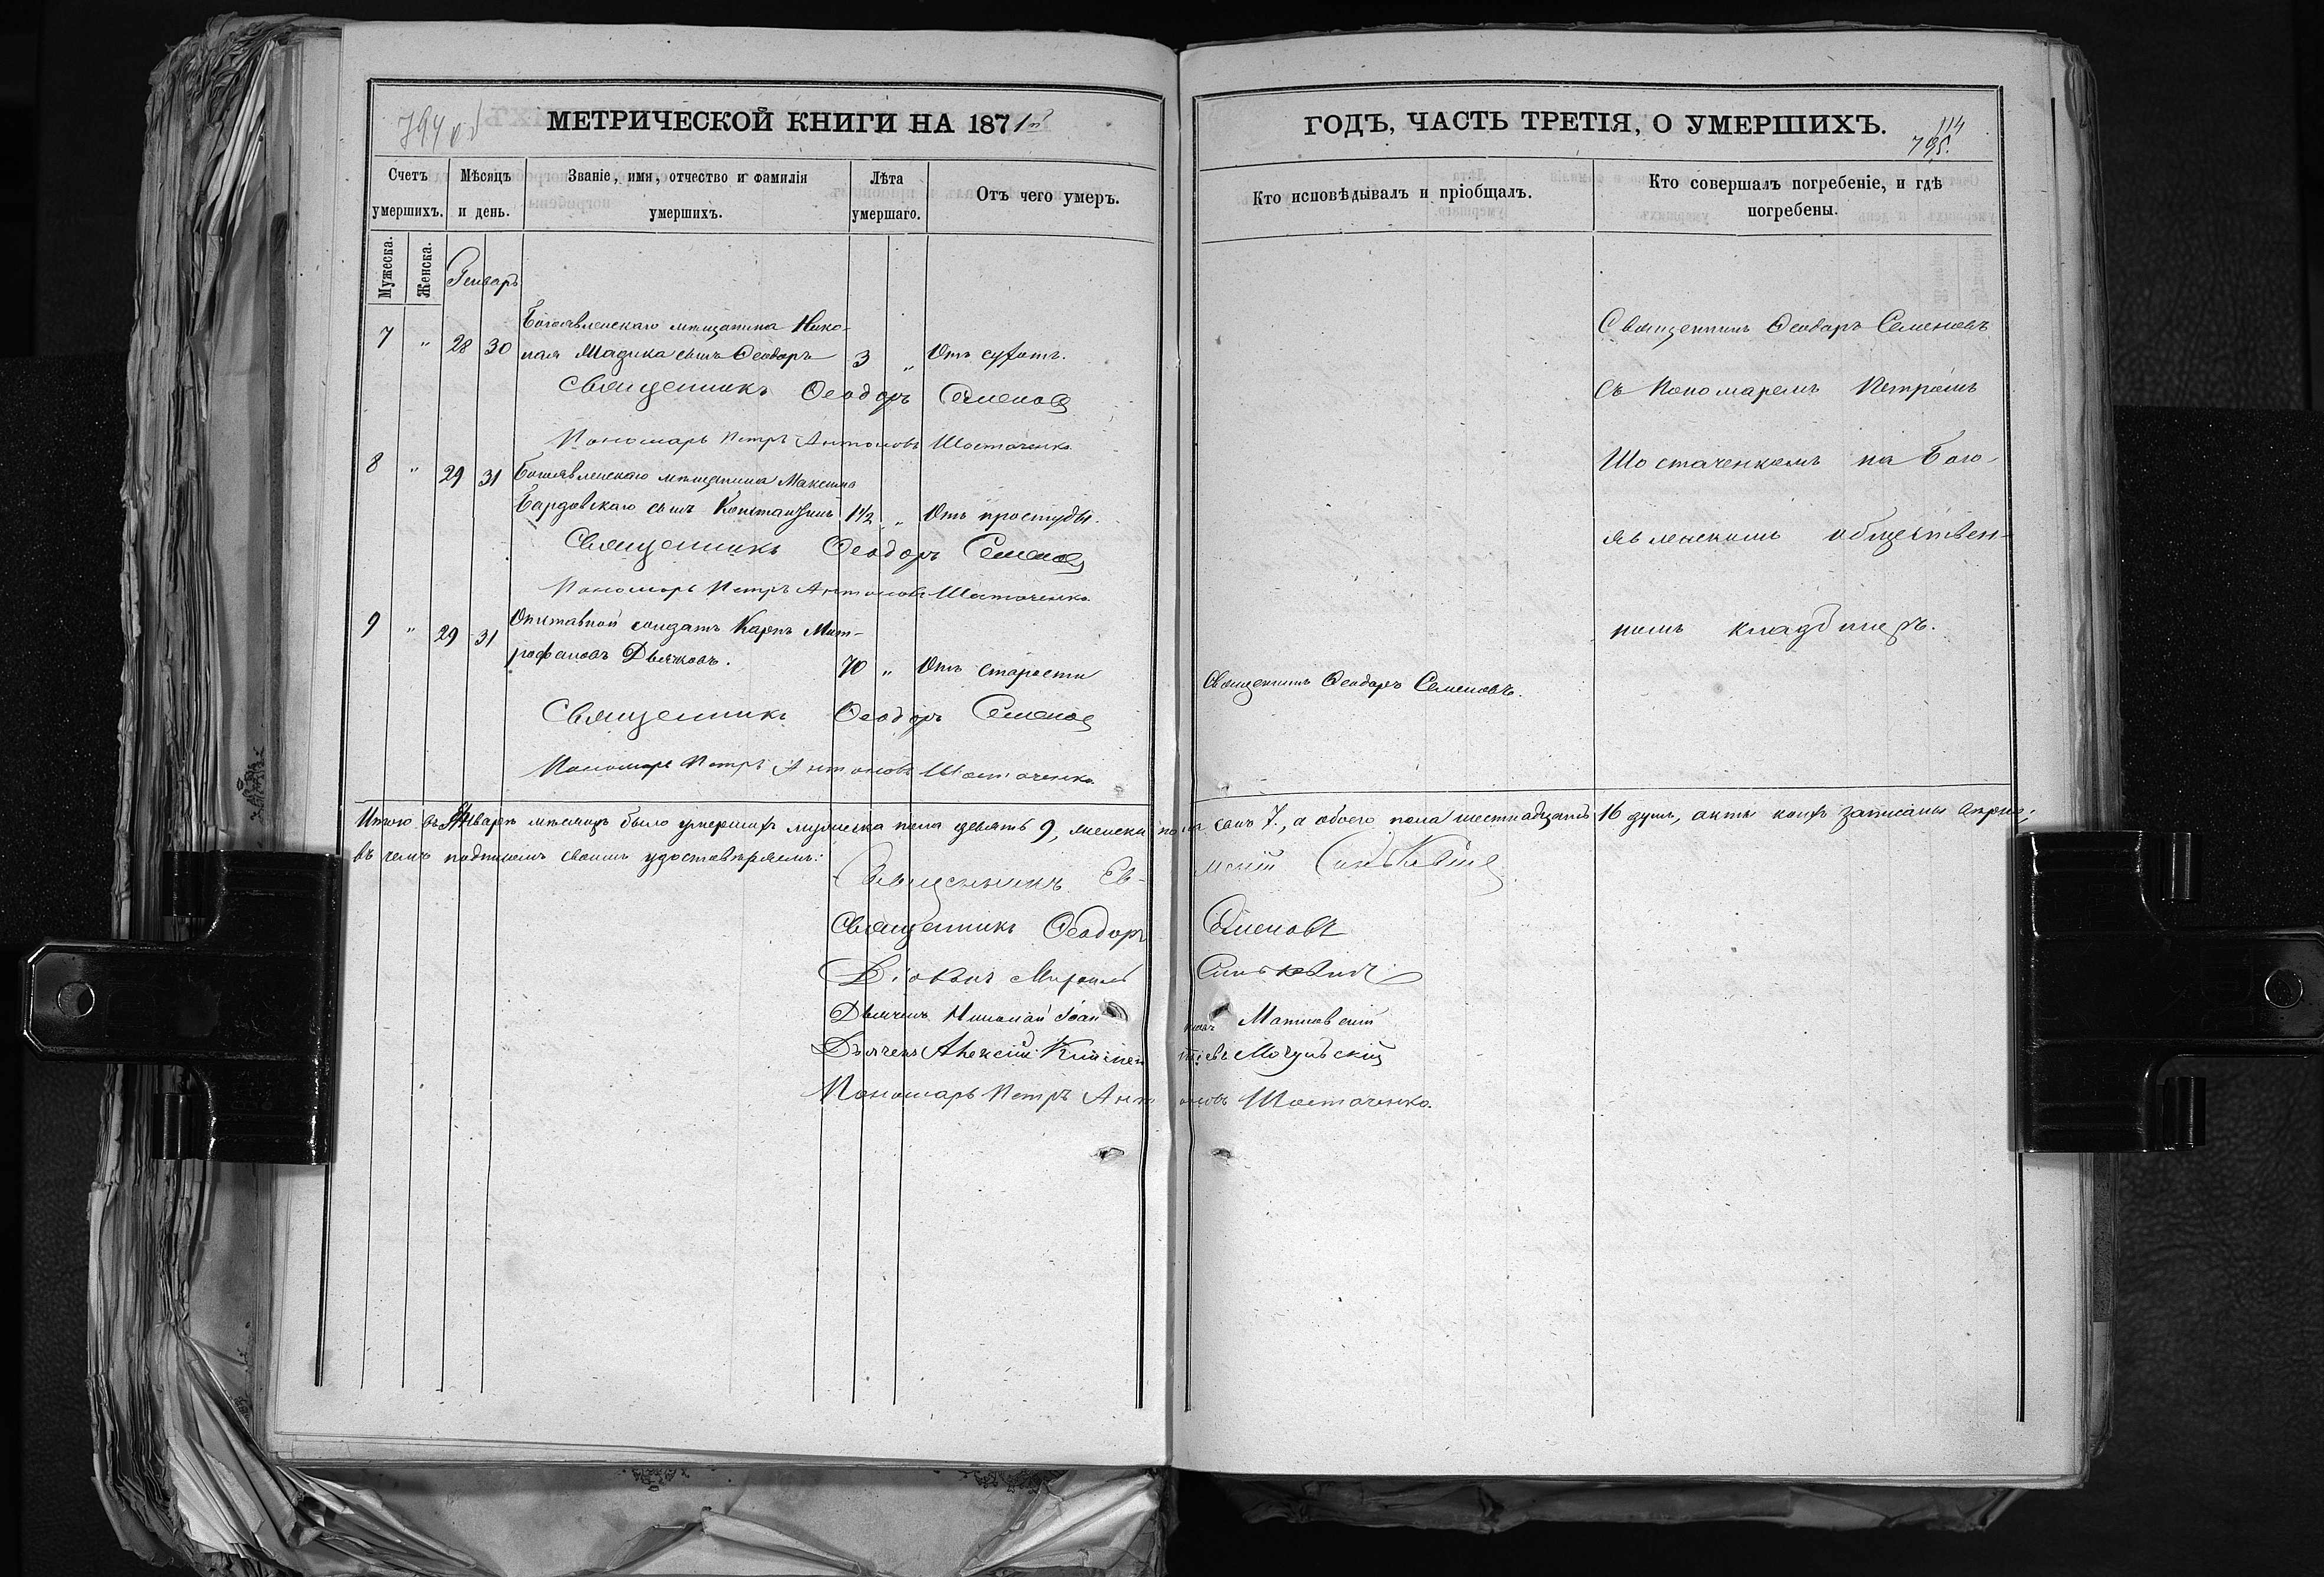 794 об
МЕТРИЧЕСКОЙ КНИГИ НА 1871й
Счетъ умершихъ.
Мѣсяцъ и день.
Званіе, имя, отчество и фамилія умершихъ.
Лѣта умершаго.
Отъ чего умеръ.
Мужеска.
Женска.
Генваръ
7 " 28 30 Богоявленскаго мѣщанина Нико-
лая Мадика сынъ Ѳеодоръ 3 " Отъ сухотъ.
Священникъ Ѳеодоръ Семеновъ
Пономарь Петръ Антоновъ Шостаченко
8 " 29 31 Богоявленскаго мѣщанина Максима
Бардовскаго сынъ Константинъ 1½ " Отъ простуды.
Священникъ Ѳеодоръ Семеновъ
Пономарь Петръ Антоновъ Шостаченко
9 " 29 31 Отставной солдатъ Карпъ Мит-
рофановъ Дьячковъ. 70 " Отъ старости
Священникъ Ѳеодоръ Семеновъ
Пономарь Петръ Антоновъ Шостаченко
ГОДЪ, ЧАСТЬ ТРЕТІЯ, О УМЕРШИХЪ.
114
795.
Кто исповѣдывалъ и пріобщалъ.
Кто совершалъ погребеніе, и гдѣ погребены.
Священникъ Ѳеодоръ Семеновъ
съ Пономаремъ Петромъ
Шостаченкомъ на Бого-
явленскомъ обществен-
номъ кладбищѣ.
Священникъ Ѳеодоръ Семеновъ.
Итого въ Январѣ мѣсяцѣ было умершихъ мужеска пола девять 9, женска пола семь 7, а обоего пола шестнадцать 16 душъ, акты коихъ записаны вѣрно;
въ чемъ подписомъ своимъ удостовѣряемъ:
Священникъ Ев-мений Синькевичъ
Священникъ Ѳеодоръ Семеновъ
Діаконъ Михаилъ Синькевичъ
Дьячекъ Николай Іоанновъ Матковскій
Дьячекъ Алексій Климентіевъ Мочульскій
Пономарь Петръ Антоновъ Шостаченко.